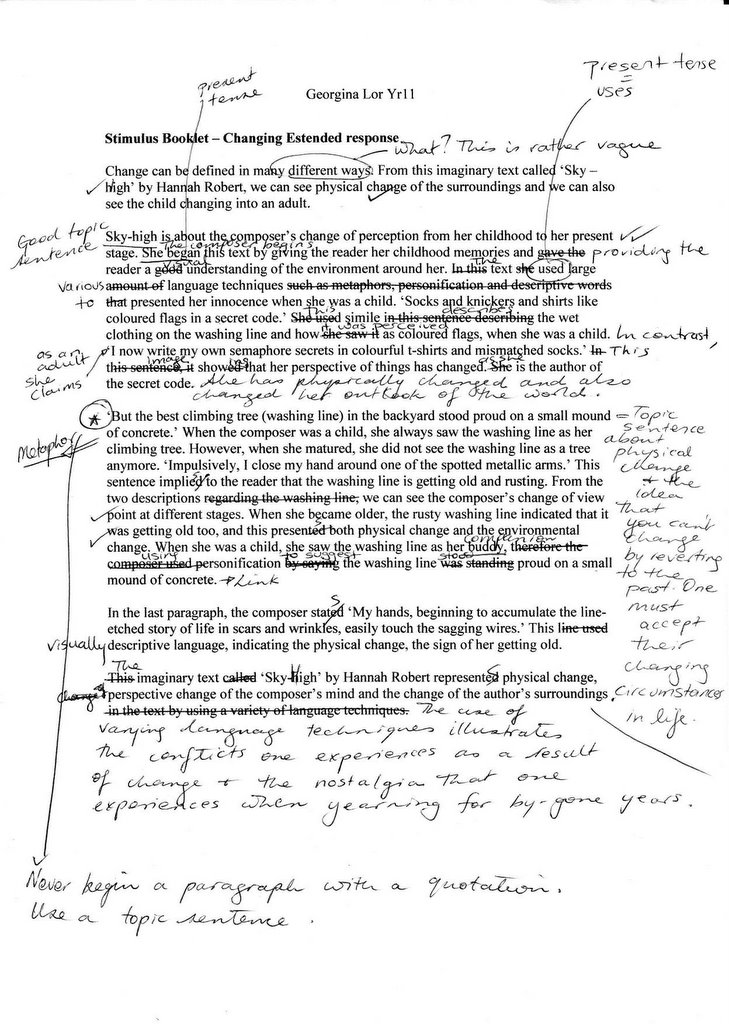 present tense
present
tense
uses
Georgina Lor Yr11
Stimulus Booklet – Changing Extended response
What? This is rather vague
Change can be defined in many different ways. From this imaginary text called ‘Sky –
high’ by Hannah Robert, we can see physical change of the surroundings and we can also
see the child changing into an adult.
Good topic
sentence
Sky-high is about the composer’s change of perception from her childhood to her present
The composer begins
stage. She began this text by giving the reader her childhood memories and gave the providing the
visual
The
reader a good understanding of the environment around her. In this text she used large
various amount of language techniques such as metaphors, personification and descriptive words
to that presented her innocence when she was a child. ‘Socks and knickers and shirts like
This
describes
coloured flags in a secret code.’ She used simile in this sentence describing the wet
it was perceived
clothing on the washing line and how she saw it as coloured flags, when she was a child. In contrast,
as an
adult
she
claims
‘I now write my own semaphore secrets in colourful t-shirts and mismatched socks.’ In This
image
as she
this sentence, it showed that her perspective of things has changed. She is the author of
the secret code. She has physically changed and also
changed her outlook of the world.
*
‘But the best climbing tree (washing line) in the backyard stood proud on a small mound
of concrete.’ When the composer was a child, she always saw the washing line as her
Metaphor
climbing tree. However, when she matured, she did not see the washing line as a tree
anymore. ‘Impulsively, I close my hand around one of the spotted metallic arms.’ This
sentence implied to the reader that the washing line is getting old and rusting. From the
two descriptions regarding the washing line, we can see the composer’s change of view
point at different stages. When she became older, the rusty washing line indicated that it
was getting old too, and this presented both physical change and the environmental
companion
change. When she was a child, she saw the washing line as her buddy, therefore the
using
to suggest
stood
composer used personification by saying the washing line was standing proud on a small
mound of concrete. + Link
= Topic
sentence
about
physical
change
+ the
idea
that
you can't
change
by reverting
to the
past. One
must
accept
their
changing
circumstances
in life.
In the last paragraph, the composer stated ‘My hands, beginning to accumulate the line-
s
etched story of life in scars and wrinkles, easily touch the sagging wires.’ This line used
visually descriptive language, indicating the physical change, the sign of her getting old.
The
This imaginary text called ‘Sky-High’ by Hannah Robert represented physical change,
perspective change of the composer’s mind and the change of the author’s surroundings.
in the text by using a variety of language techniques. The use of
varying language techniques illustrates
the conflicts one experiences as a result
of change + the nostalgia that one
experiences when yearning for by-gone years.
Never begin a paragraph with a quotation.
Use a topic sentence.